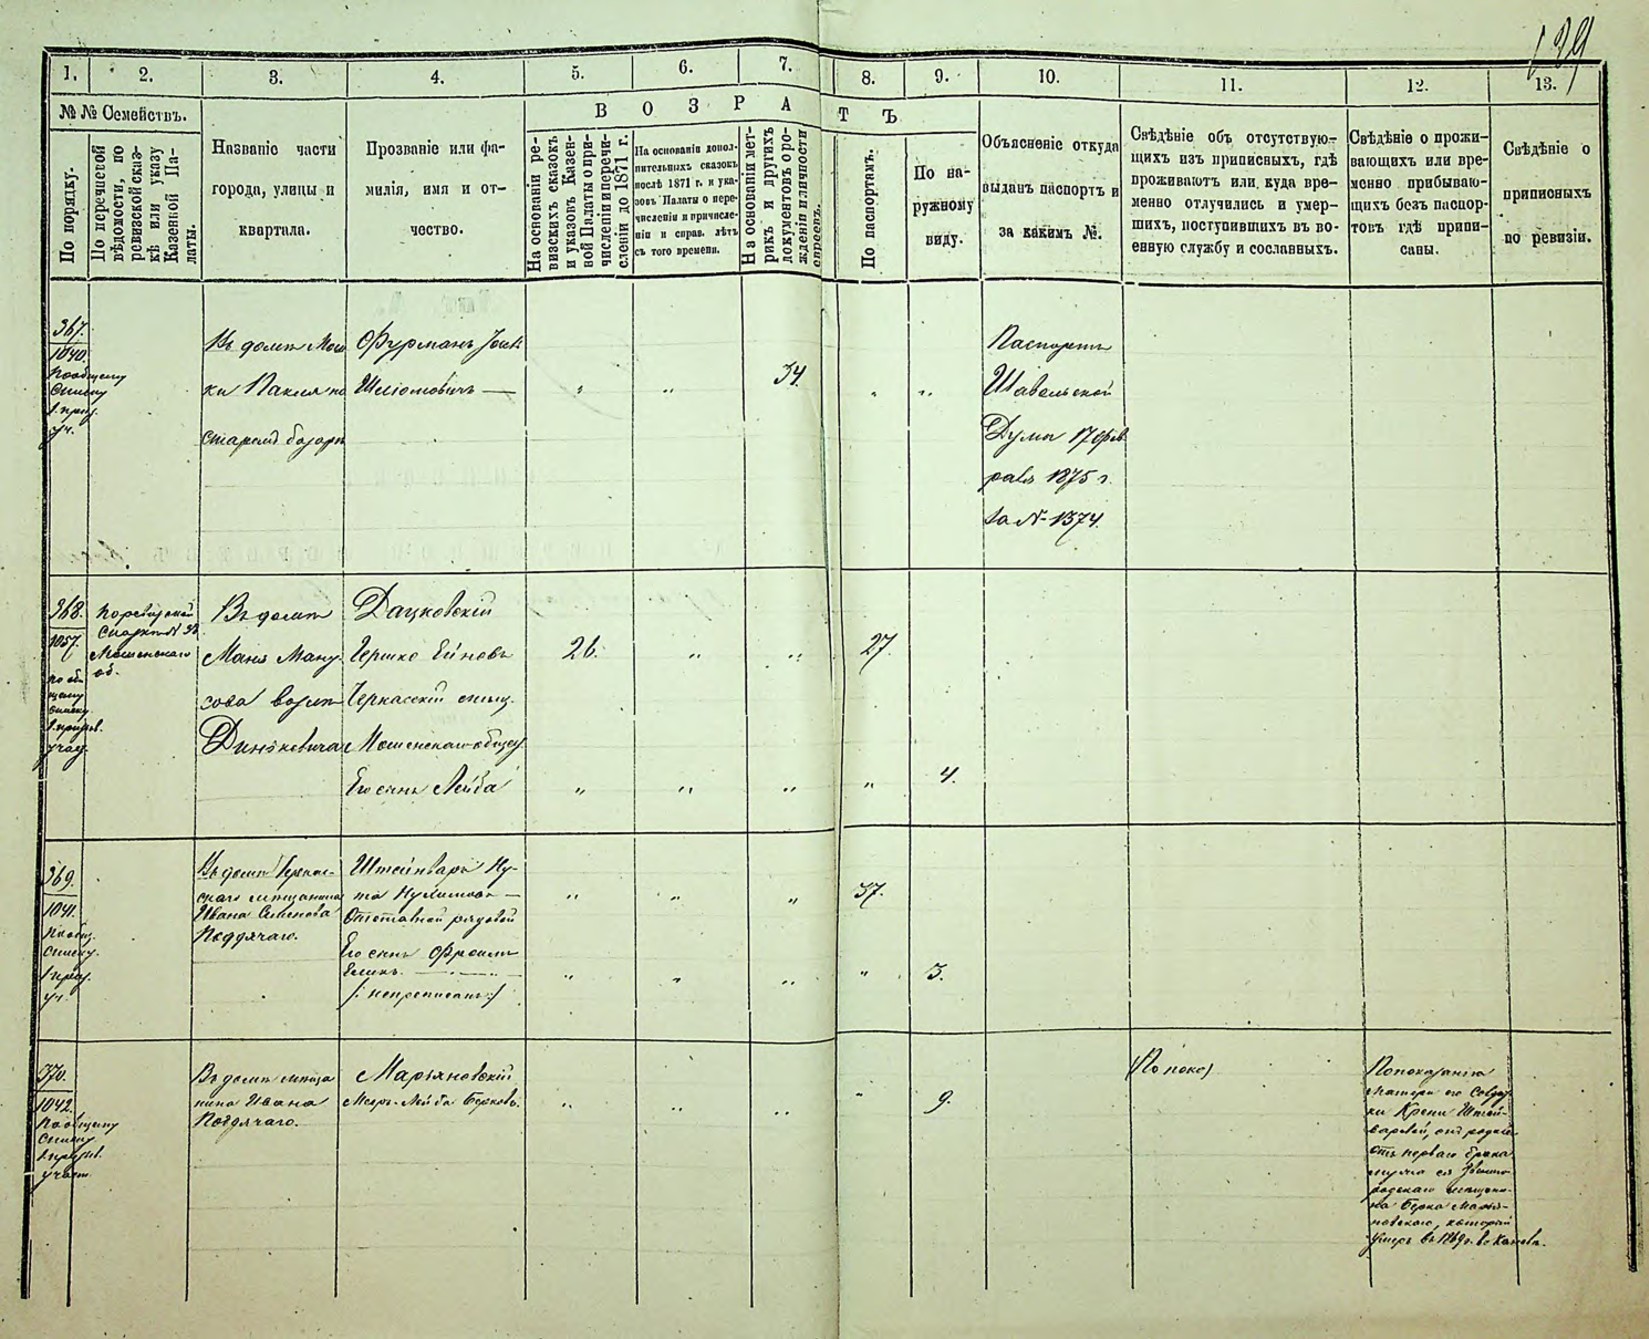 139
1. 2. 3. 4. 5. 6. 7. 8. 9. 10. 11. 12. 13.
№ № Семействъ.
По порядку.
По перечневой
вѣдомости, по
ревизской сказ-
кѣ или указу
Казенной Па-
латы.
Названіе части
города, улицы и
квартала.
Прозваніе или фа-
милія, имя и от-
чество.
ВОЗРАСТЪ
На основаніи ре-
визскихъ сказокъ
и указовъ Казен-
ной Палаты о при-
численіи и перечи-
сленіи до 1871 г.
На основаніи допол-
нительныхъ сказокъ
послѣ 1871 г. и ука-
зовъ Палаты о пере-
численіи и причисле-
ніи и справ. лѣтъ
съ того времени.
На основаніи мет-
рикъ и другихъ
документовъ о ро-
жденіи и личности
По паспортамъ.
По на-
ружному
виду.
Объясненіе откуда
выданъ паспортъ и
за какимъ №.
Свѣдѣніе объ отсутствую-
щихъ изъ приписныхъ, гдѣ
проживаютъ или куда вре-
менно отлучились и умер-
шихъ, поступившихъ въ во-
енную службу и сосланныхъ.
Свѣдѣніе о прожи-
вающихъ или вре-
менно прибываю-
щихъ безъ паспор-
товъ гдѣ припи-
саны.
Свѣдѣніе о
приписныхъ
по ревизіи.
367.
1040.
По общему
списку
1 приз.
уч.
Въ домѣ Мош
ки
старомъ базарѣ
Фурманъ
Шліомовичъ —
34.
Паспортъ
Шавельской
Думы 17 фев
раля 1875 г.
за № 1374.
368.
1057.
по об
щему
списку
1 призыв.
учас.
По ревизской
Мошенскаго
об.
Въ домѣ
Маня Ману
сова возлѣ
Динькевича
Дацковскій
Гершко Ейновъ
Черкасскій мѣщ.
Мошенскаго общес.
Его сынъ Лейба
26.
27.
4.
369.
1041.
По общ.
списку
1 приз.
уч.
Въ домѣ Черкас-
скаго мѣщанина
Ивана Семенова
Поддячаго.
Штейнваръ Ну-
та Нухимовъ —
Отставной рядовой
Его сынъ Фроимъ
Еликъ.
/: неприписанъ :/
37.
3.
370.
1042.
По общему
списку
1 призыв.
участ.
Въ домѣ мѣща
нина Ивана
Поддячаго.
Марьяновскій
Меръ-Лейба Берковъ.
9.
По показанію
матери его
ки Крени Штей-
варовой, онъ
отъ перваго брака
мужа ея Звени
родскаго мѣщани-
на Берка Марья-
новскаго, который
умеръ въ 1869 г. въ Каневѣ.